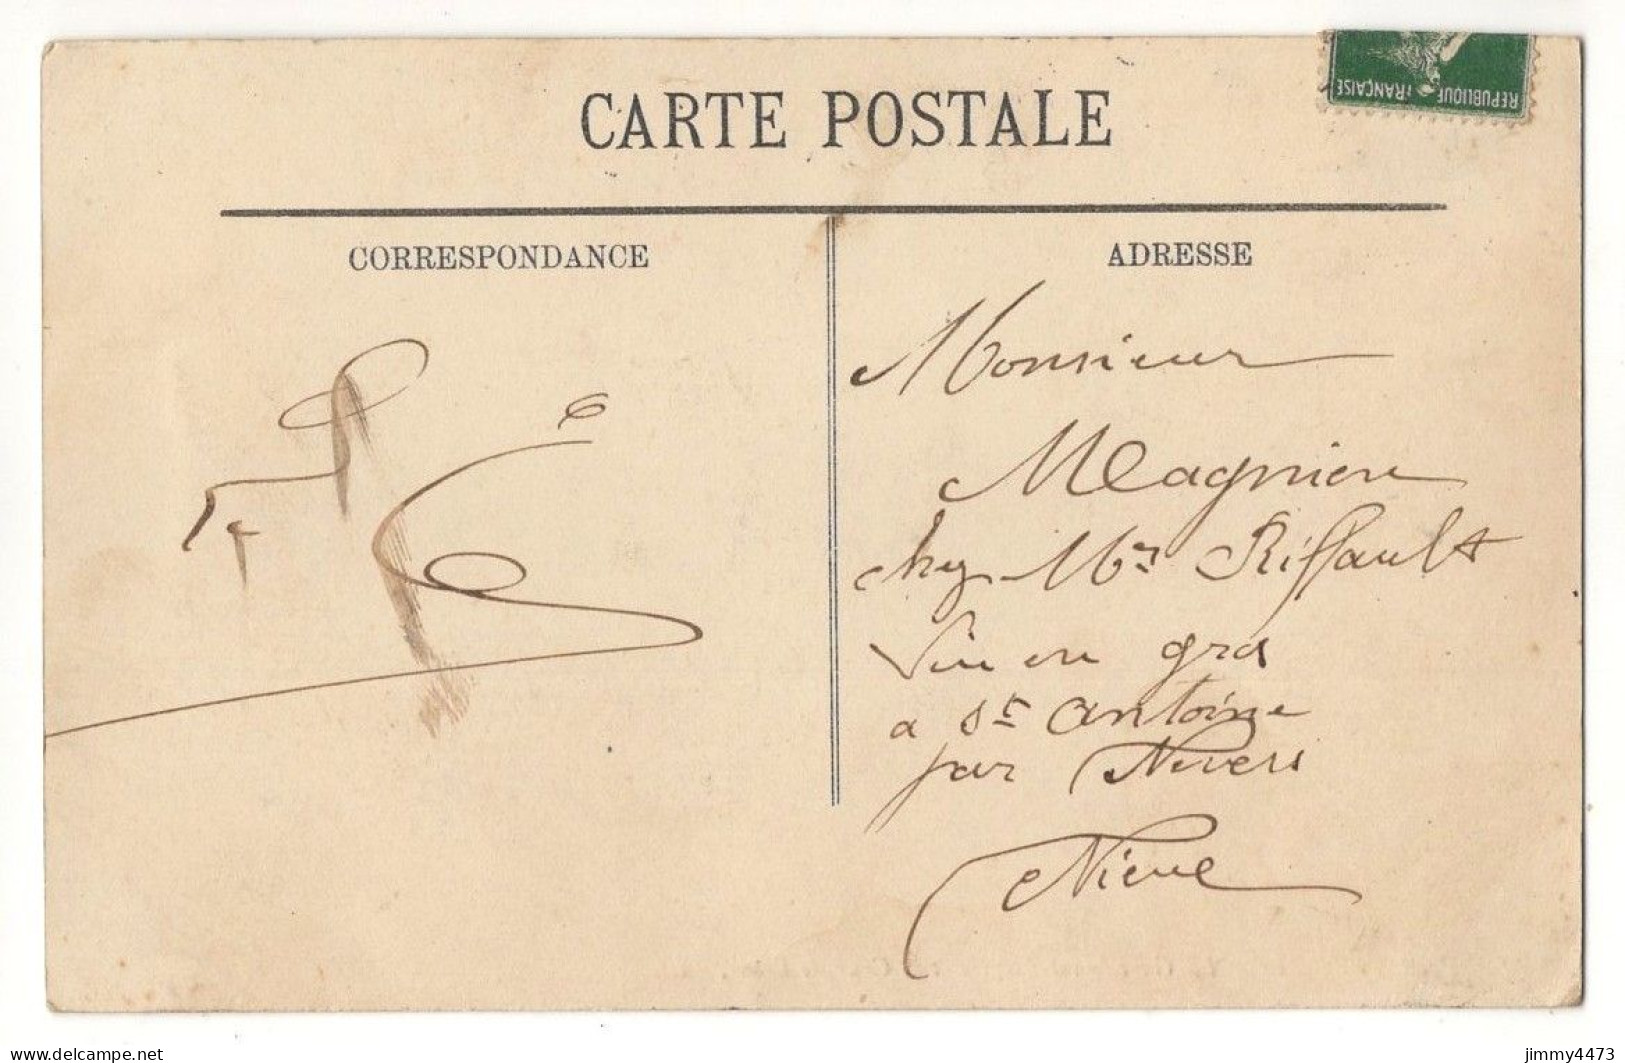 CARTE POSTALE
REPUBLIQUE FRANÇAISE
CORRESPONDANCE
ADRESSE
Monsieur
Magnien
chez Mr Riffault
Vin en gros
a St Antoine
par Nevers
Nievre
jimmy4473